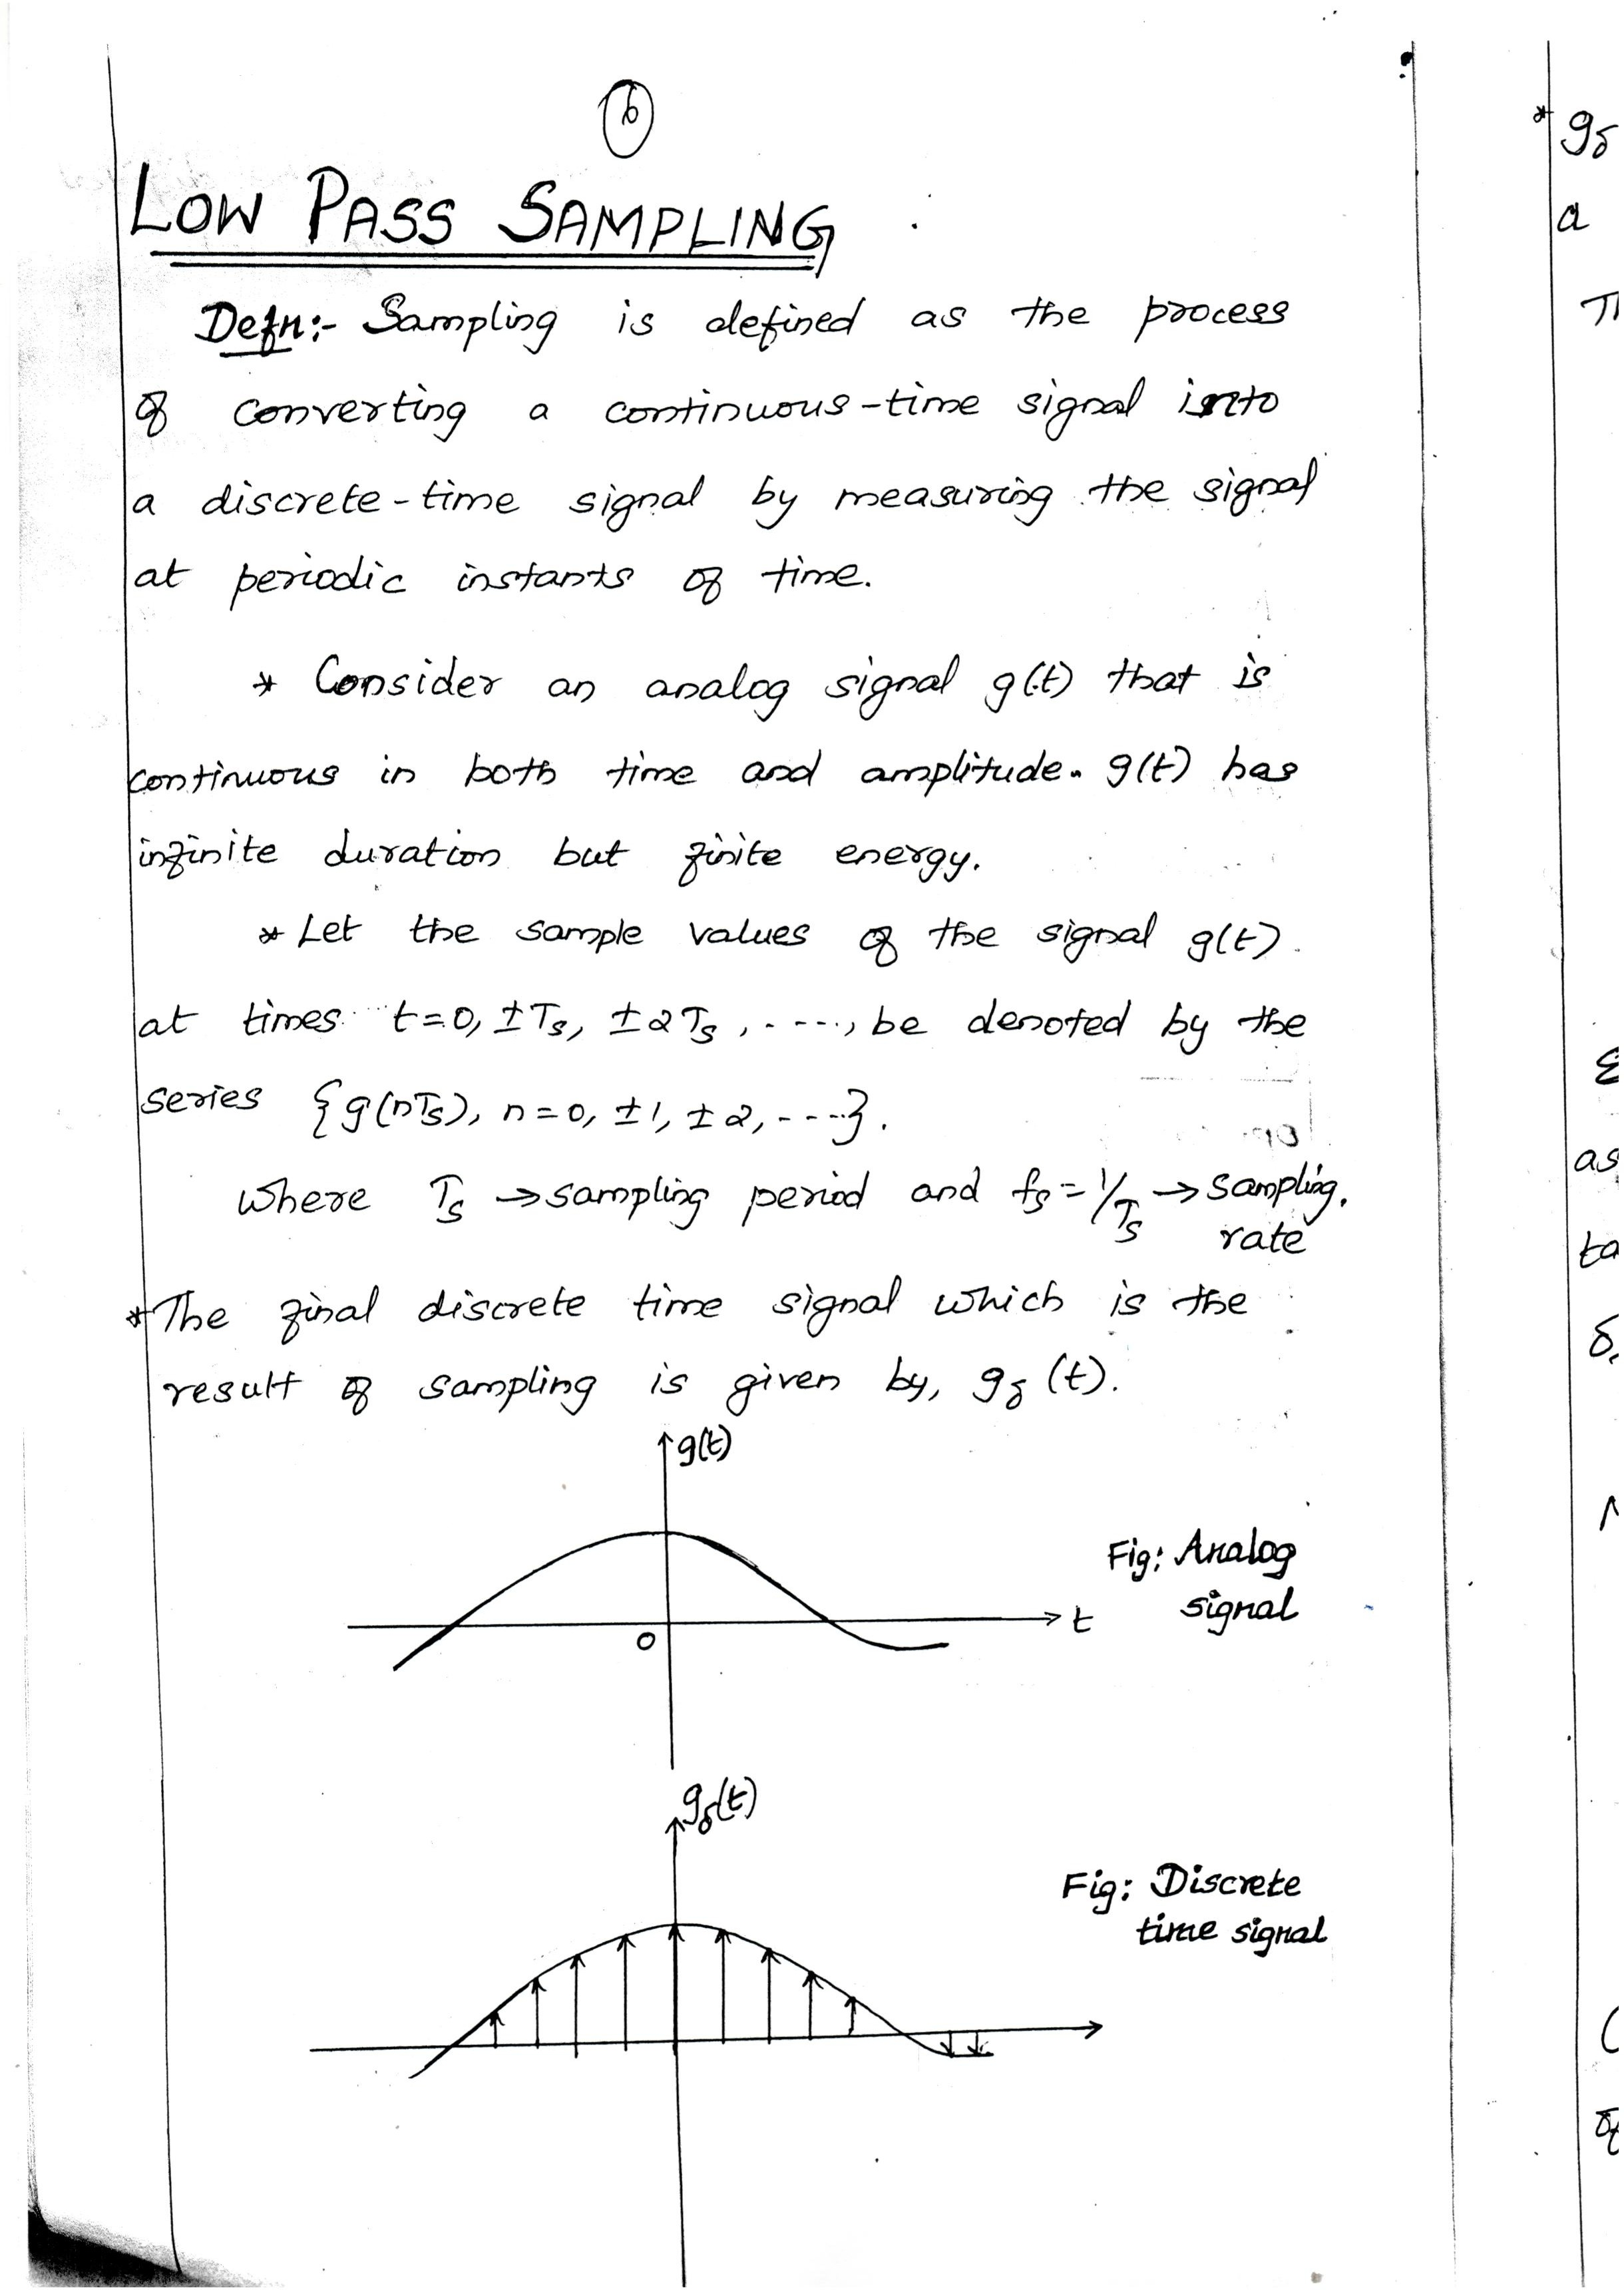 6
LOW PASS SAMPLING
Defn:- Sampling is defined as the process
of converting a continuous-time signal into
a discrete-time signal by measuring the signal
at periodic instants of time.
* Consider an analog signal g(t) that is
continuous in both time and amplitude. g(t) has
infinite duration but finite energy.
* Let the sample values of the signal g(t)
at times t=0, ±Ts, ±2Ts, ----, be denoted by the
series {g(nTs), n=0, ±1, ±2, ----}.
where Ts → sampling period and fs = 1/Ts → sampling.
rate
* The final discrete time signal which is the
result of sampling is given by, gδ(t).
g(t)
Fig: Analog
signal
t
0
gδ(t)
Fig: Discrete
time signal
* gδ
a
as
ta
of